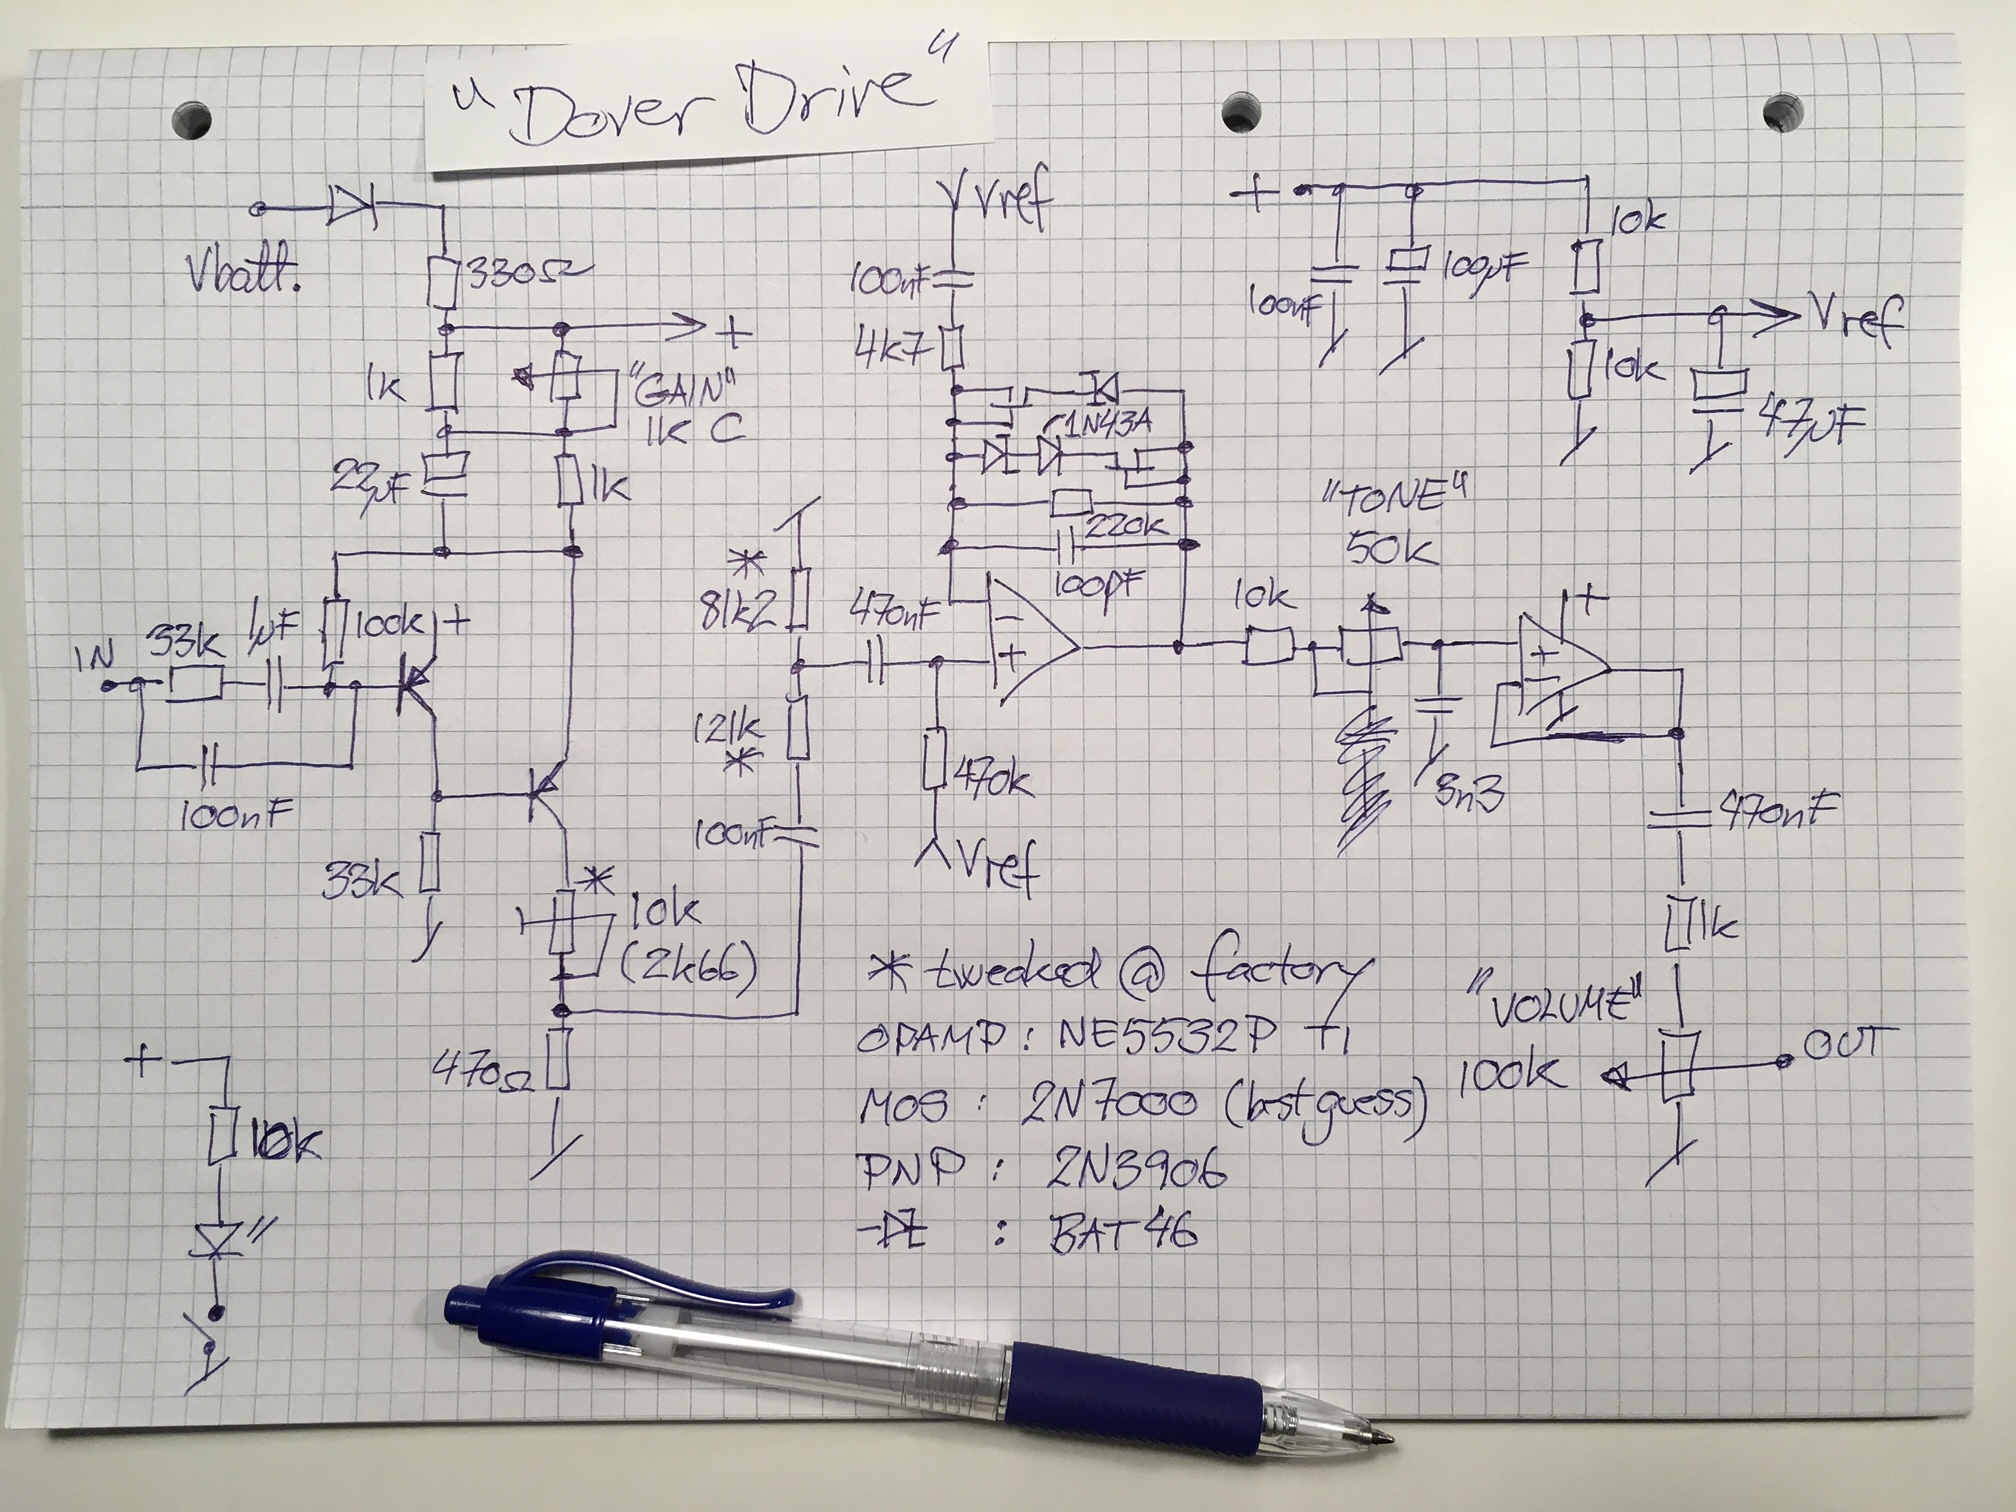 "Dover Drive"
Vbatt.
330Ω
+
1k
"GAIN"
1k C
22µF
1k
IN
33k
1µF
100k
+
100nF
33k
*
10k
(2k66)
470Ω
+
10k
Vref
100nF
4k7
1N43A
220k
100pF
*
81k2
470nF
121k
*
100nF
470k
Vref
-
+
+
100nF
100µF
10k
10k
Vref
47µF
"TONE"
50k
10k
+
+
-
3n3
470nF
1k
"VOLUME"
100k
OUT
* tweaked @ factory
OPAMP : NE5532P TI
MOS : 2N7000 (best guess)
PNP : 2N3906
: BAT46